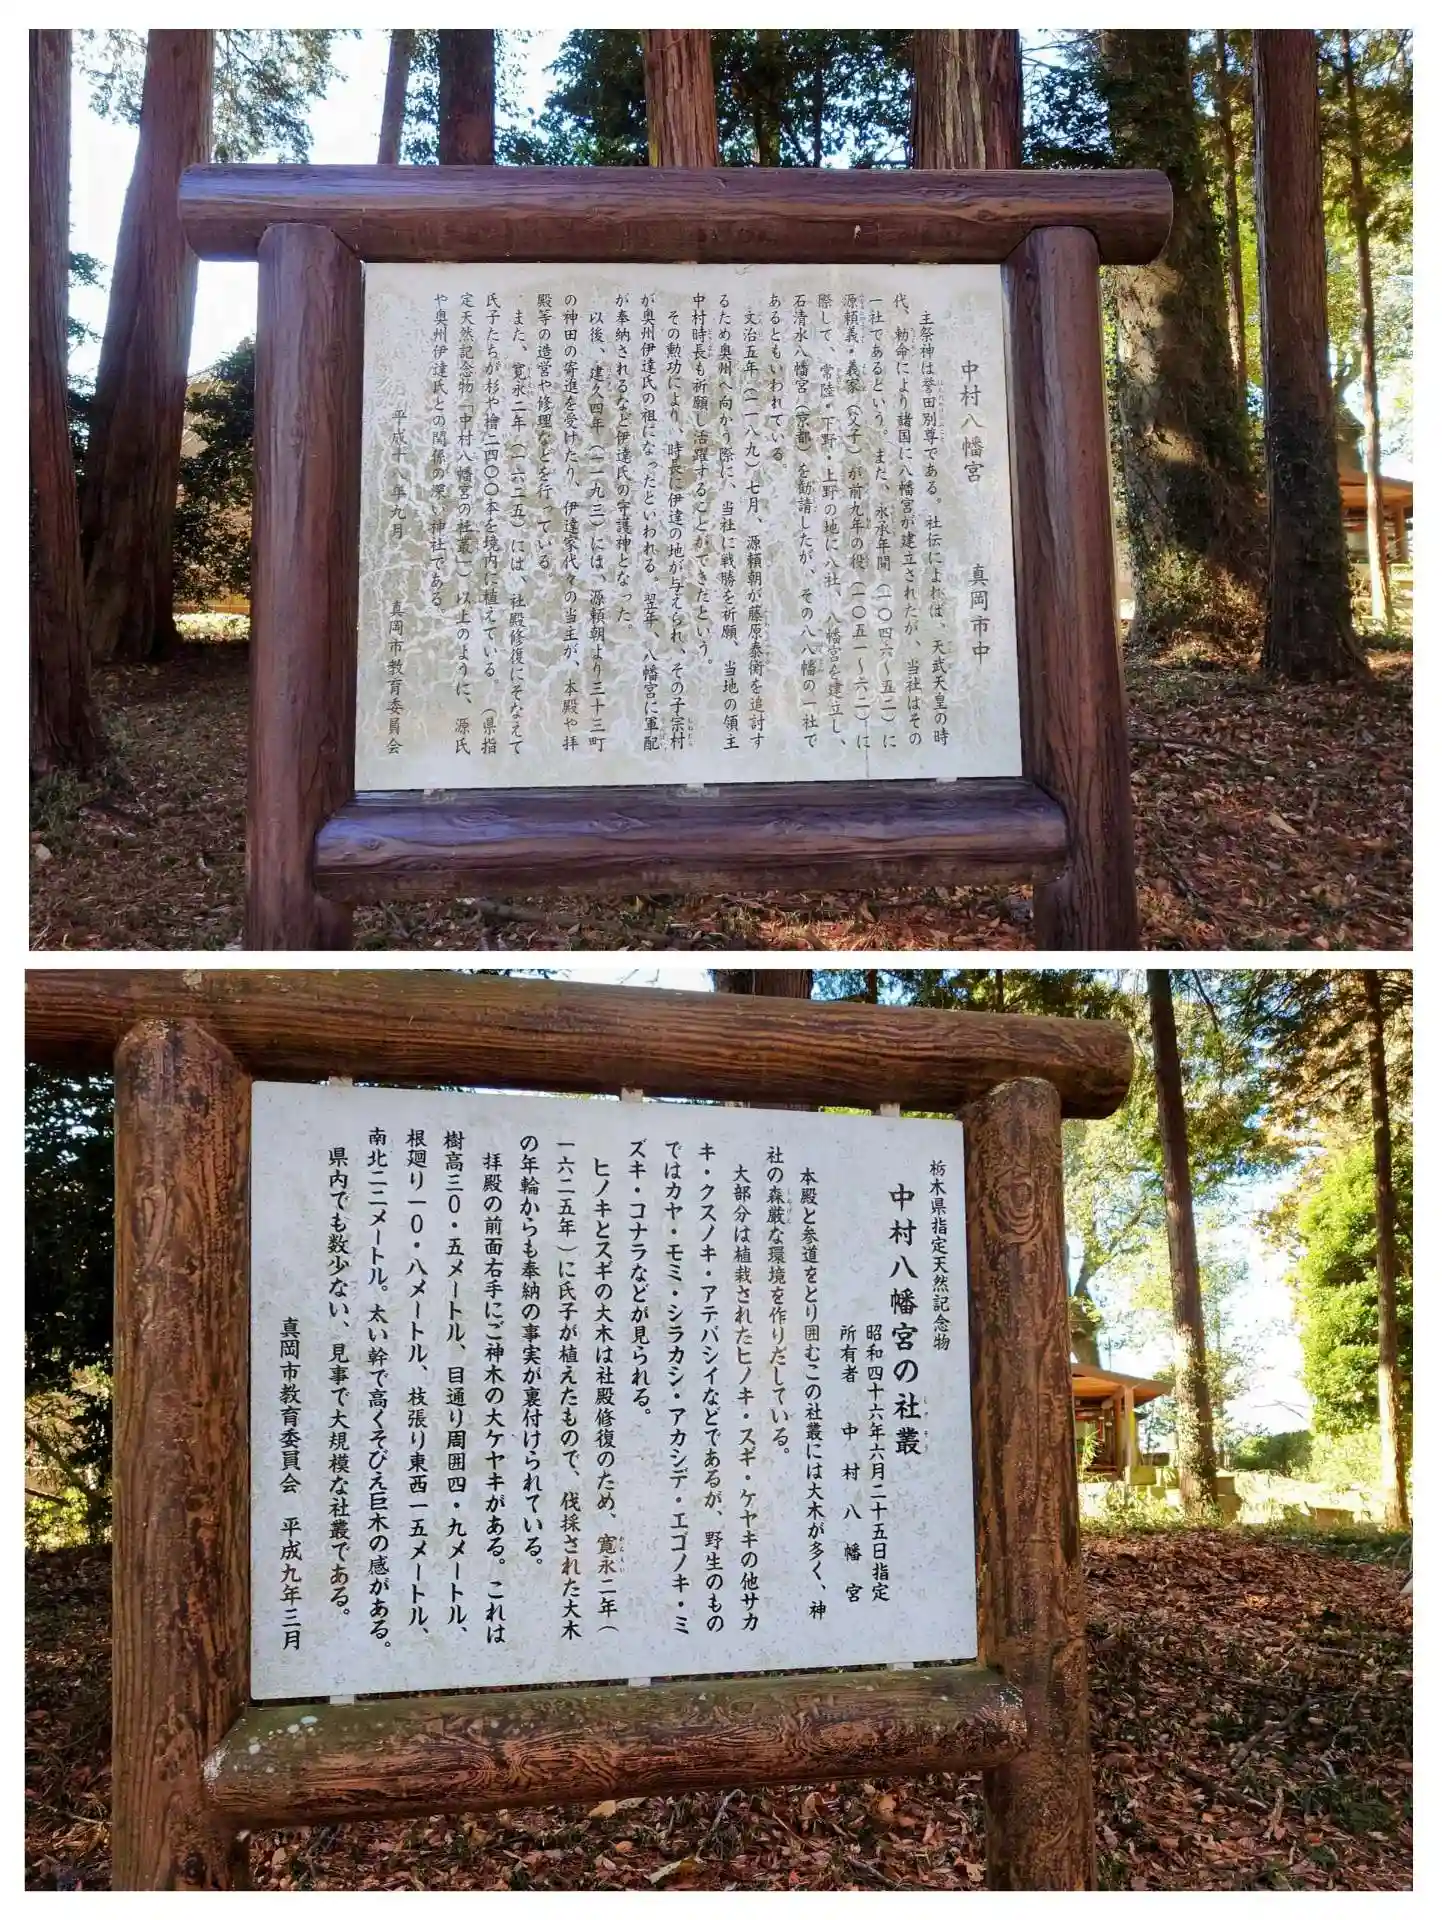 中村八幡宮
真岡市中
主祭神は誉田別尊である。社伝によれば、天武天皇の時
代、勅命により諸国に八幡宮が建立されたが、当社はその
一社であるという。また、永承年間（一〇四六～五二）に
源頼義・義家（父子）が前九年の役（一〇五一～六二）に
際して、常陸・下野・上野の地に八社、八幡宮を建立し、
石清水八幡宮（京都）を勧請したが、その八八幡の一社で
あるともいわれている。
文治五年（一一八九）七月、源頼朝が藤原泰衡を追討す
るため奥州へ向かう際に、当社に戦勝を祈願、当地の領主
中村時長も祈願し活躍することができたという。
その勲功により、時長に伊達の地が与えられ、その子宗村
が奥州伊達氏の祖になったといわれる。翌年、八幡宮に軍配
が奉納されるなど伊達氏の守護神となった。
以後、建久四年（一一九三）には、源頼朝より三十三町
の神田の寄進を受けたり、伊達家代々の当主が、本殿や拝
殿等の造営や修理などを行っている。
また、寛永二年（一六二五）には、社殿修復にそなえて
氏子たちが杉や檜二四〇〇本を境内に植えている。（県指
定天然記念物「中村八幡宮の社叢」）以上のように、源氏
や奥州伊達氏との関係の深い神社である。
平成十八年九月　真岡市教育委員会
栃木県指定天然記念物
中村八幡宮の社叢
昭和四十六年六月二十五日指定
所有者　中村八幡宮
本殿と参道をとり囲むこの社叢には大木が多く、神
社の森厳な環境を作りだしている。
大部分は植栽されたヒノキ・スギ・ケヤキの他サカ
キ・クスノキ・アテバシイなどであるが、野生のもの
ではカヤ・モミ・シラカシ・アカシデ・エゴノキ・ミ
ズキ・コナラなどが見られる。
ヒノキとスギの大木は社殿修復のため、寛永二年（
一六二五年）に氏子が植えたもので、伐採された大木
の年輪からも奉納の事実が裏付けられている。
拝殿の前面右手にご神木の大ケヤキがある。これは
樹高三〇・五メートル、目通り周囲四・九メートル、
根廻り一〇・八メートル、枝張り東西一五メートル、
南北二二メートル。太い幹で高くそびえ巨木の感がある。
県内でも数少ない、見事で大規模な社叢である。
真岡市教育委員会　平成九年三月